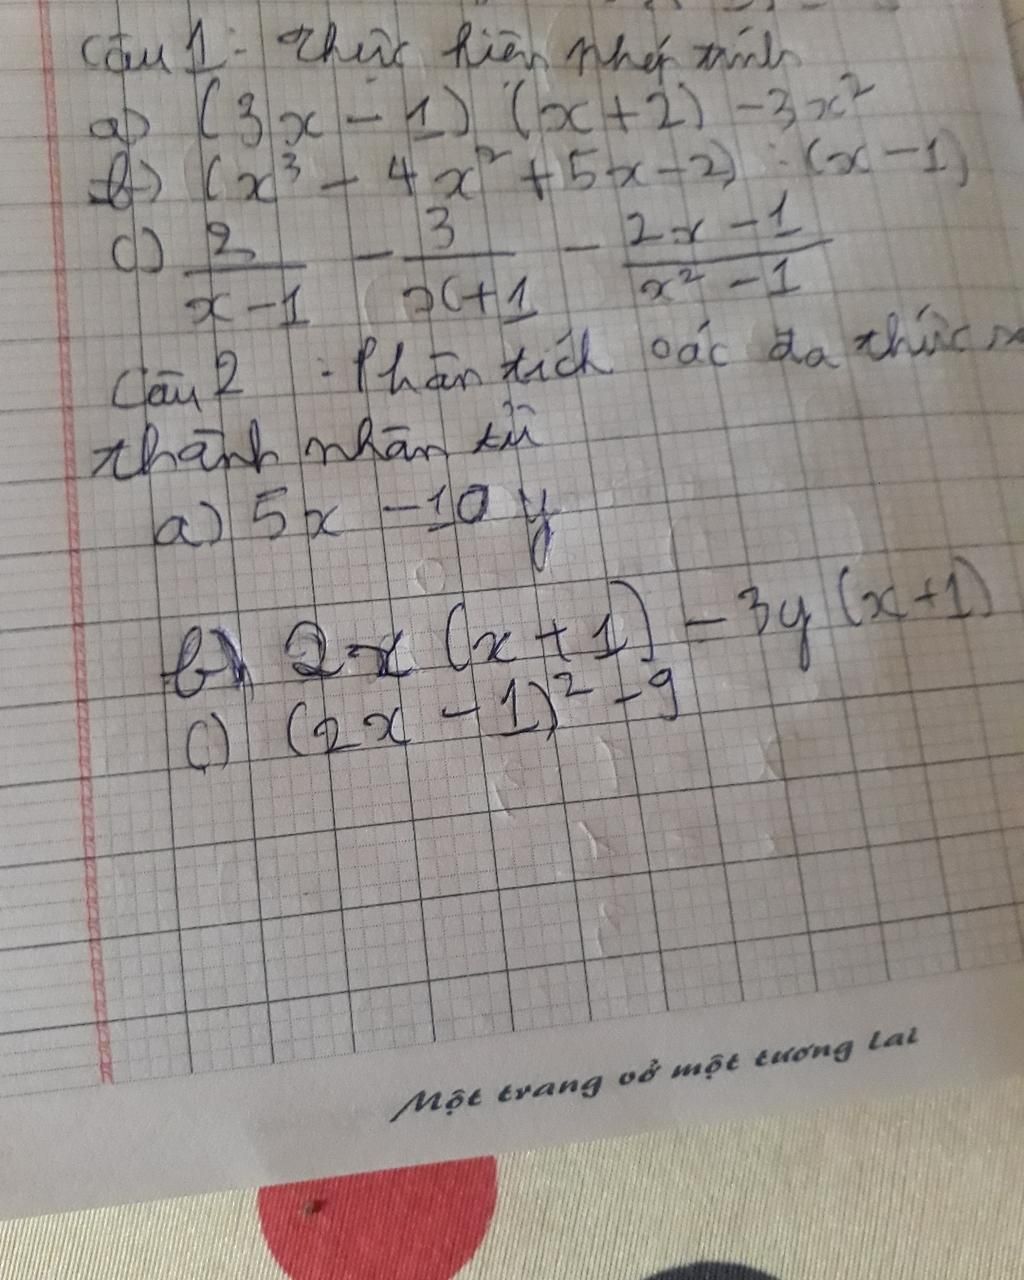 Câu 1: Thực hiện phép tính
a) (3x - 1) (x + 2) - 3x²
b) (x³ - 4x² + 5x - 2) : (x - 1)
c) 2/(x - 1) - 3/(x + 1) - (2x - 1)/(x² - 1)
Câu 2 : Phân tích các đa thức
thành nhân tử
a) 5x - 10y
b) 2x (x + 1) - 3y (x + 1)
c) (2x - 1)² - 9
Một trang vở một tương lai